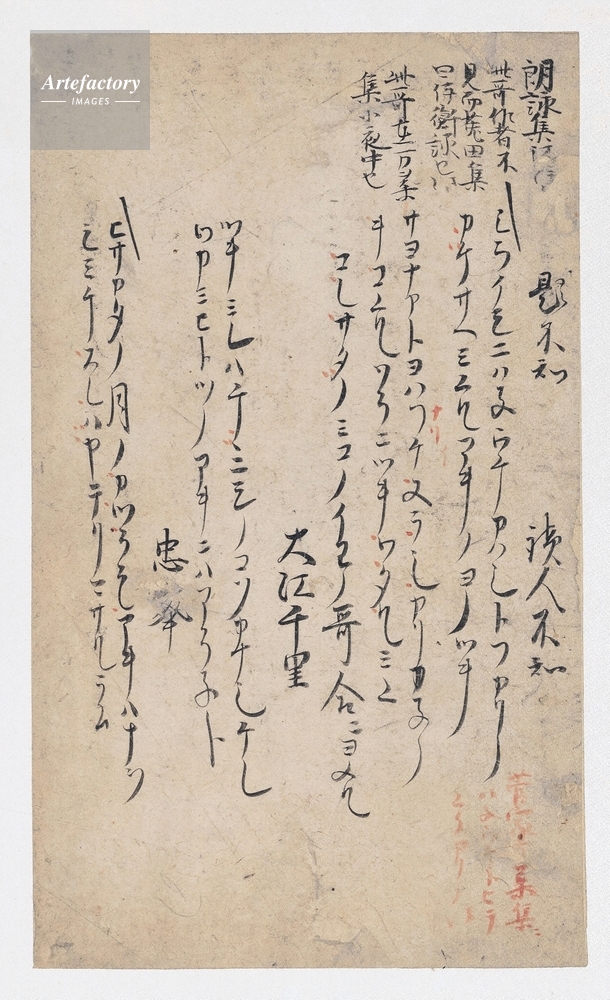 Artefactory
IMAGES
朗詠集
此哥作者不
此哥在万葉
集小夜中也
題不知 読人不知
シラクモニハネウチカハシトフカリノ
カケサヘミユルアキノヨノツキ
サヨナカトヨハフケヌラシカリカネノ
キコユルソラニツキワタルミユ
コレサタノミコノイヱノ哥合ニヨメル
大江千里
ツキミレハチヽニモノコソカナシケレ
ワカミヒトツノアキニハアラネト
忠岑
ヒサカタノ月ノカツラモアキハナヲ
モミチスレハヤテリマサルラム